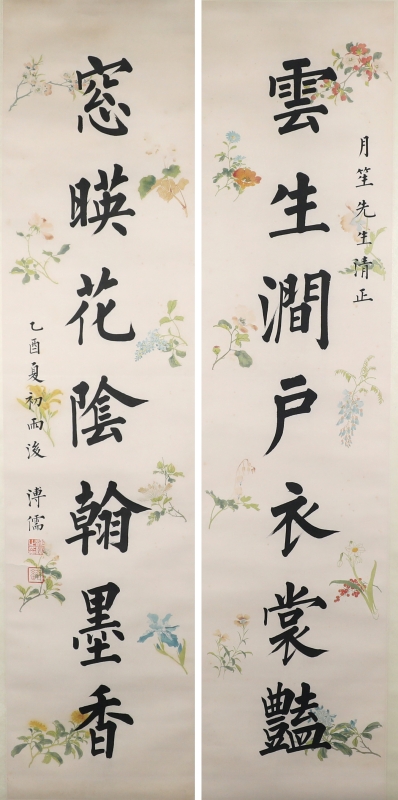 月笙先生清正
雲生澗户衣裳豔
窓暎花陰翰墨香
乙酉夏初雨後 溥儒